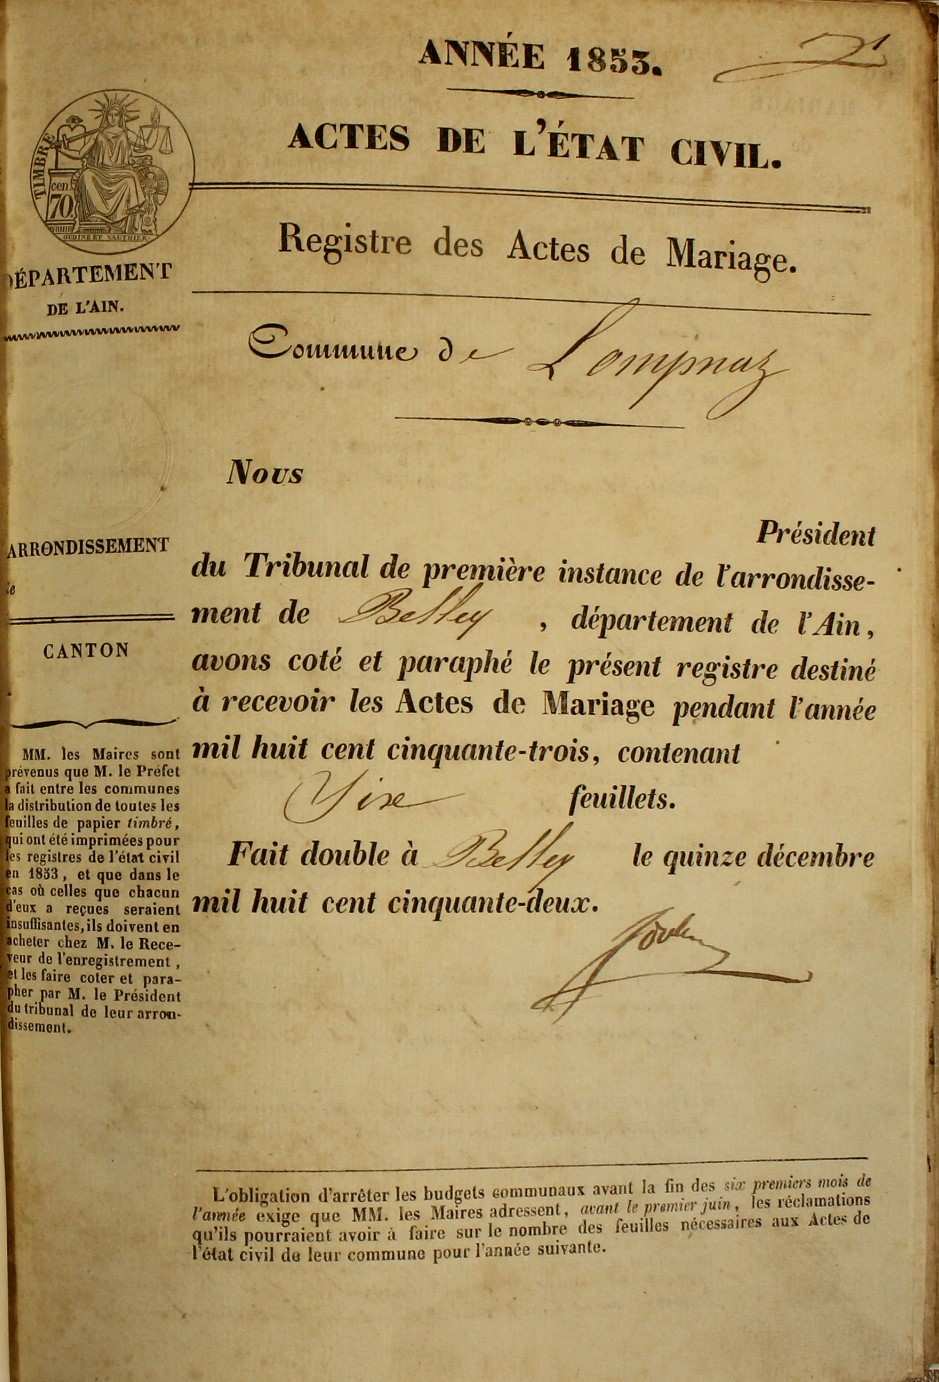 ANNÉE 1853.
ACTES DE L'ÉTAT CIVIL.
TIMBRE
cen
70
OUDINE ET SAUTHIER
DÉPARTEMENT
DE L'AIN.
Registre des Actes de Mariage.
Commune de Lompnaz
Nous
Président
du Tribunal de première instance de l'arrondisse-
ment de Belley , département de l'Ain,
avons coté et paraphé le présent registre destiné
à recevoir les Actes de Mariage pendant l'année
mil huit cent cinquante-trois, contenant
feuillets.
Fait double à Belley le quinze décembre
mil huit cent cinquante-deux.
ARRONDISSEMENT
de
CANTON
MM. les Maires sont
prévenus que M. le Préfet
a fait entre les communes
la distribution de toutes les
feuilles de papier timbré,
qui ont été imprimées pour
les registres de l'état civil
en 1853, et que dans le
cas où celles que chacun
d'eux a reçues seraient
insuffisantes, ils doivent en
acheter chez M. le Rece-
veur de l'enregistrement,
et les faire coter et para-
pher par M. le Président
du tribunal de leur arron-
dissement.
L'obligation d'arrêter les budgets communaux avant la fin des six premiers mois de
l'année exige que MM. les Maires adressent, avant le premier juin, les réclamations
qu'ils pourraient avoir à faire sur le nombre des feuilles nécessaires aux Actes de
l'état civil de leur commune pour l'année suivante.